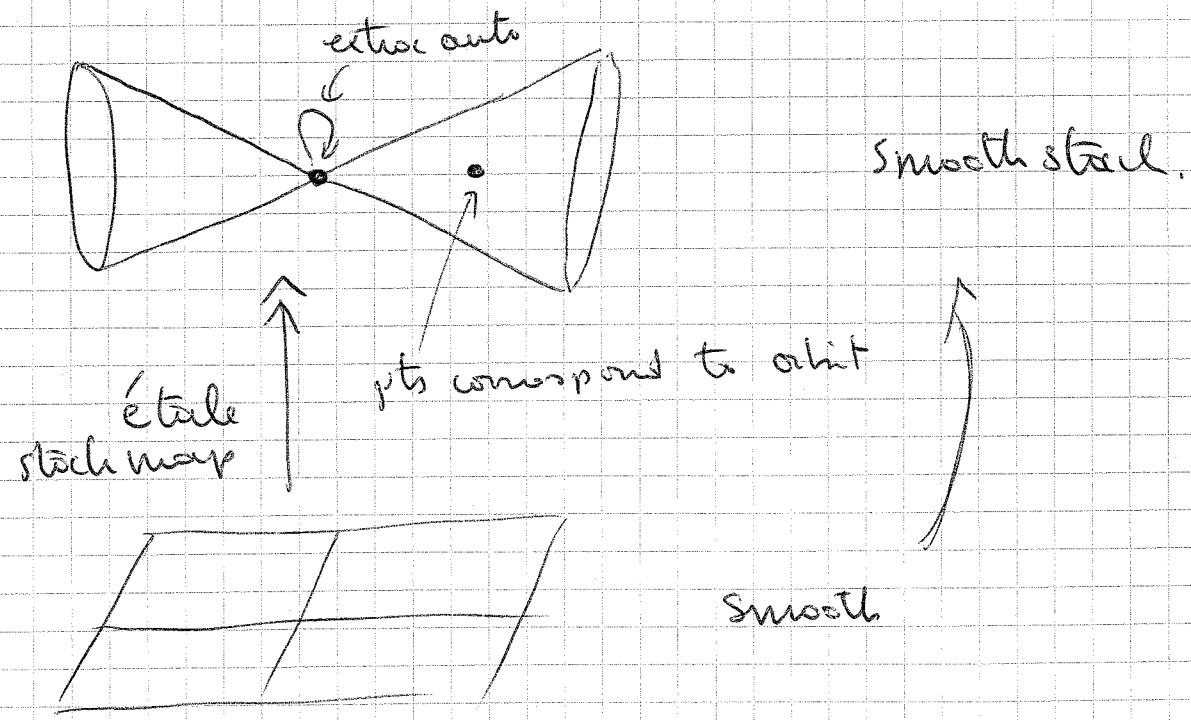 extra auto
smooth stack.
pts correspond to orbit
étale
stack map
smooth